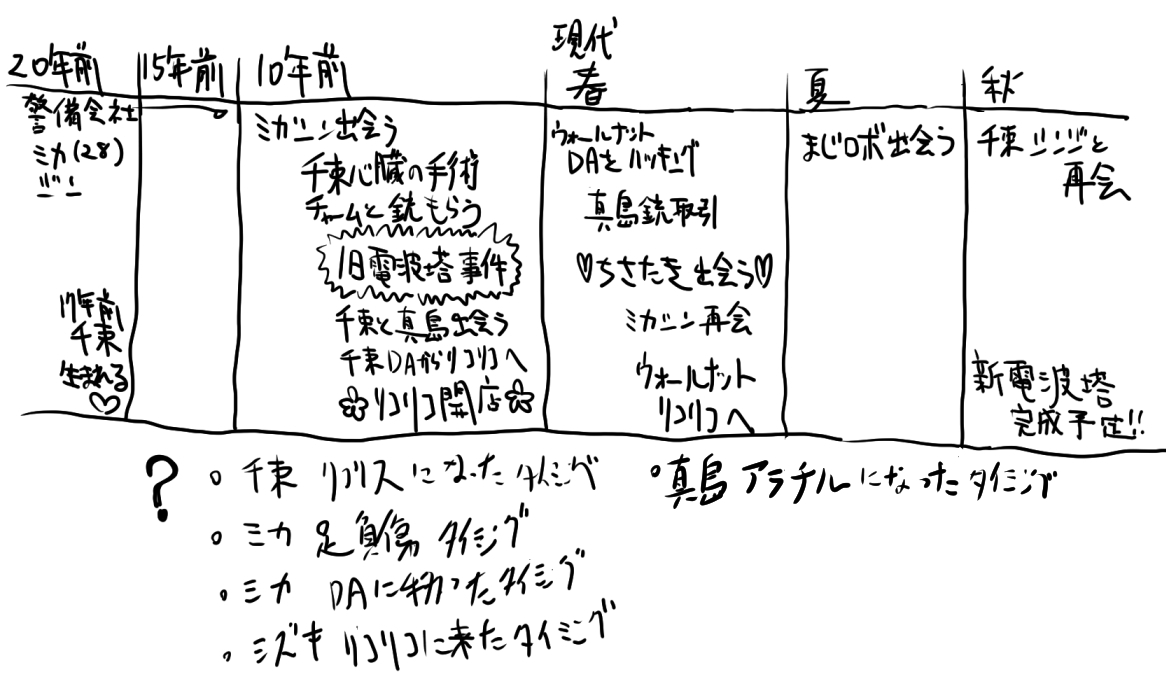 20年前
警備会社
ミカ(28)
ジン
17年前
千束
生まれる♡
15年前
10年前
ミカシン出会う
千束心臓の手術
チャームと銃もらう
旧電波塔事件
千束と真島出会う
千束DAからリコリコへ
リコリコ開店
現代
春
ウォールナット
DAをハッキング
真島銃取引
♡ちさたき出会う♡
ミカシン再会
ウォールナット
リコリコへ
夏
まじロボ出会う
秋
千束シンジと
再会
新電波塔
完成予定!!
?
○千束 リコリスになったタイミング
○ミカ 足負傷 タイミング
・ミカ DAに移ったタイミング
。ミズキ リコリコに来たタイミング
○真島 アラチルになったタイミング